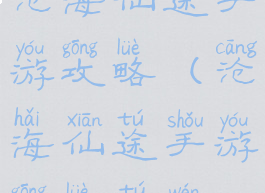 沧海仙途手
yóu gōng lüè cāng
游攻略(沧
hǎi xiān tú shǒu yóu
海仙途手游
gōng lüè tú wén